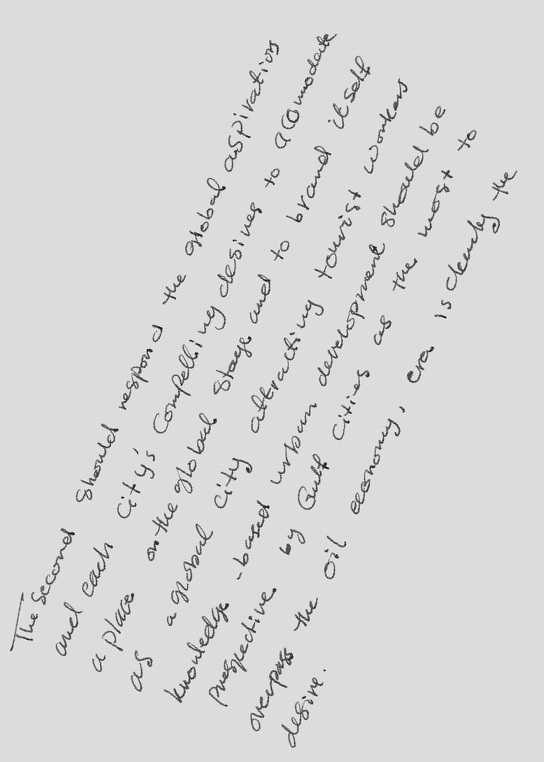 The second should respond the global aspiration
and each city's compelling desires to accomodate
a place on the global stage and to brand itself
as a global city attracting tourist workers
knowledge-based urban development should be
prespective by Gulf cities as the most to
overpass the oil economy, era is clearly the
desire.